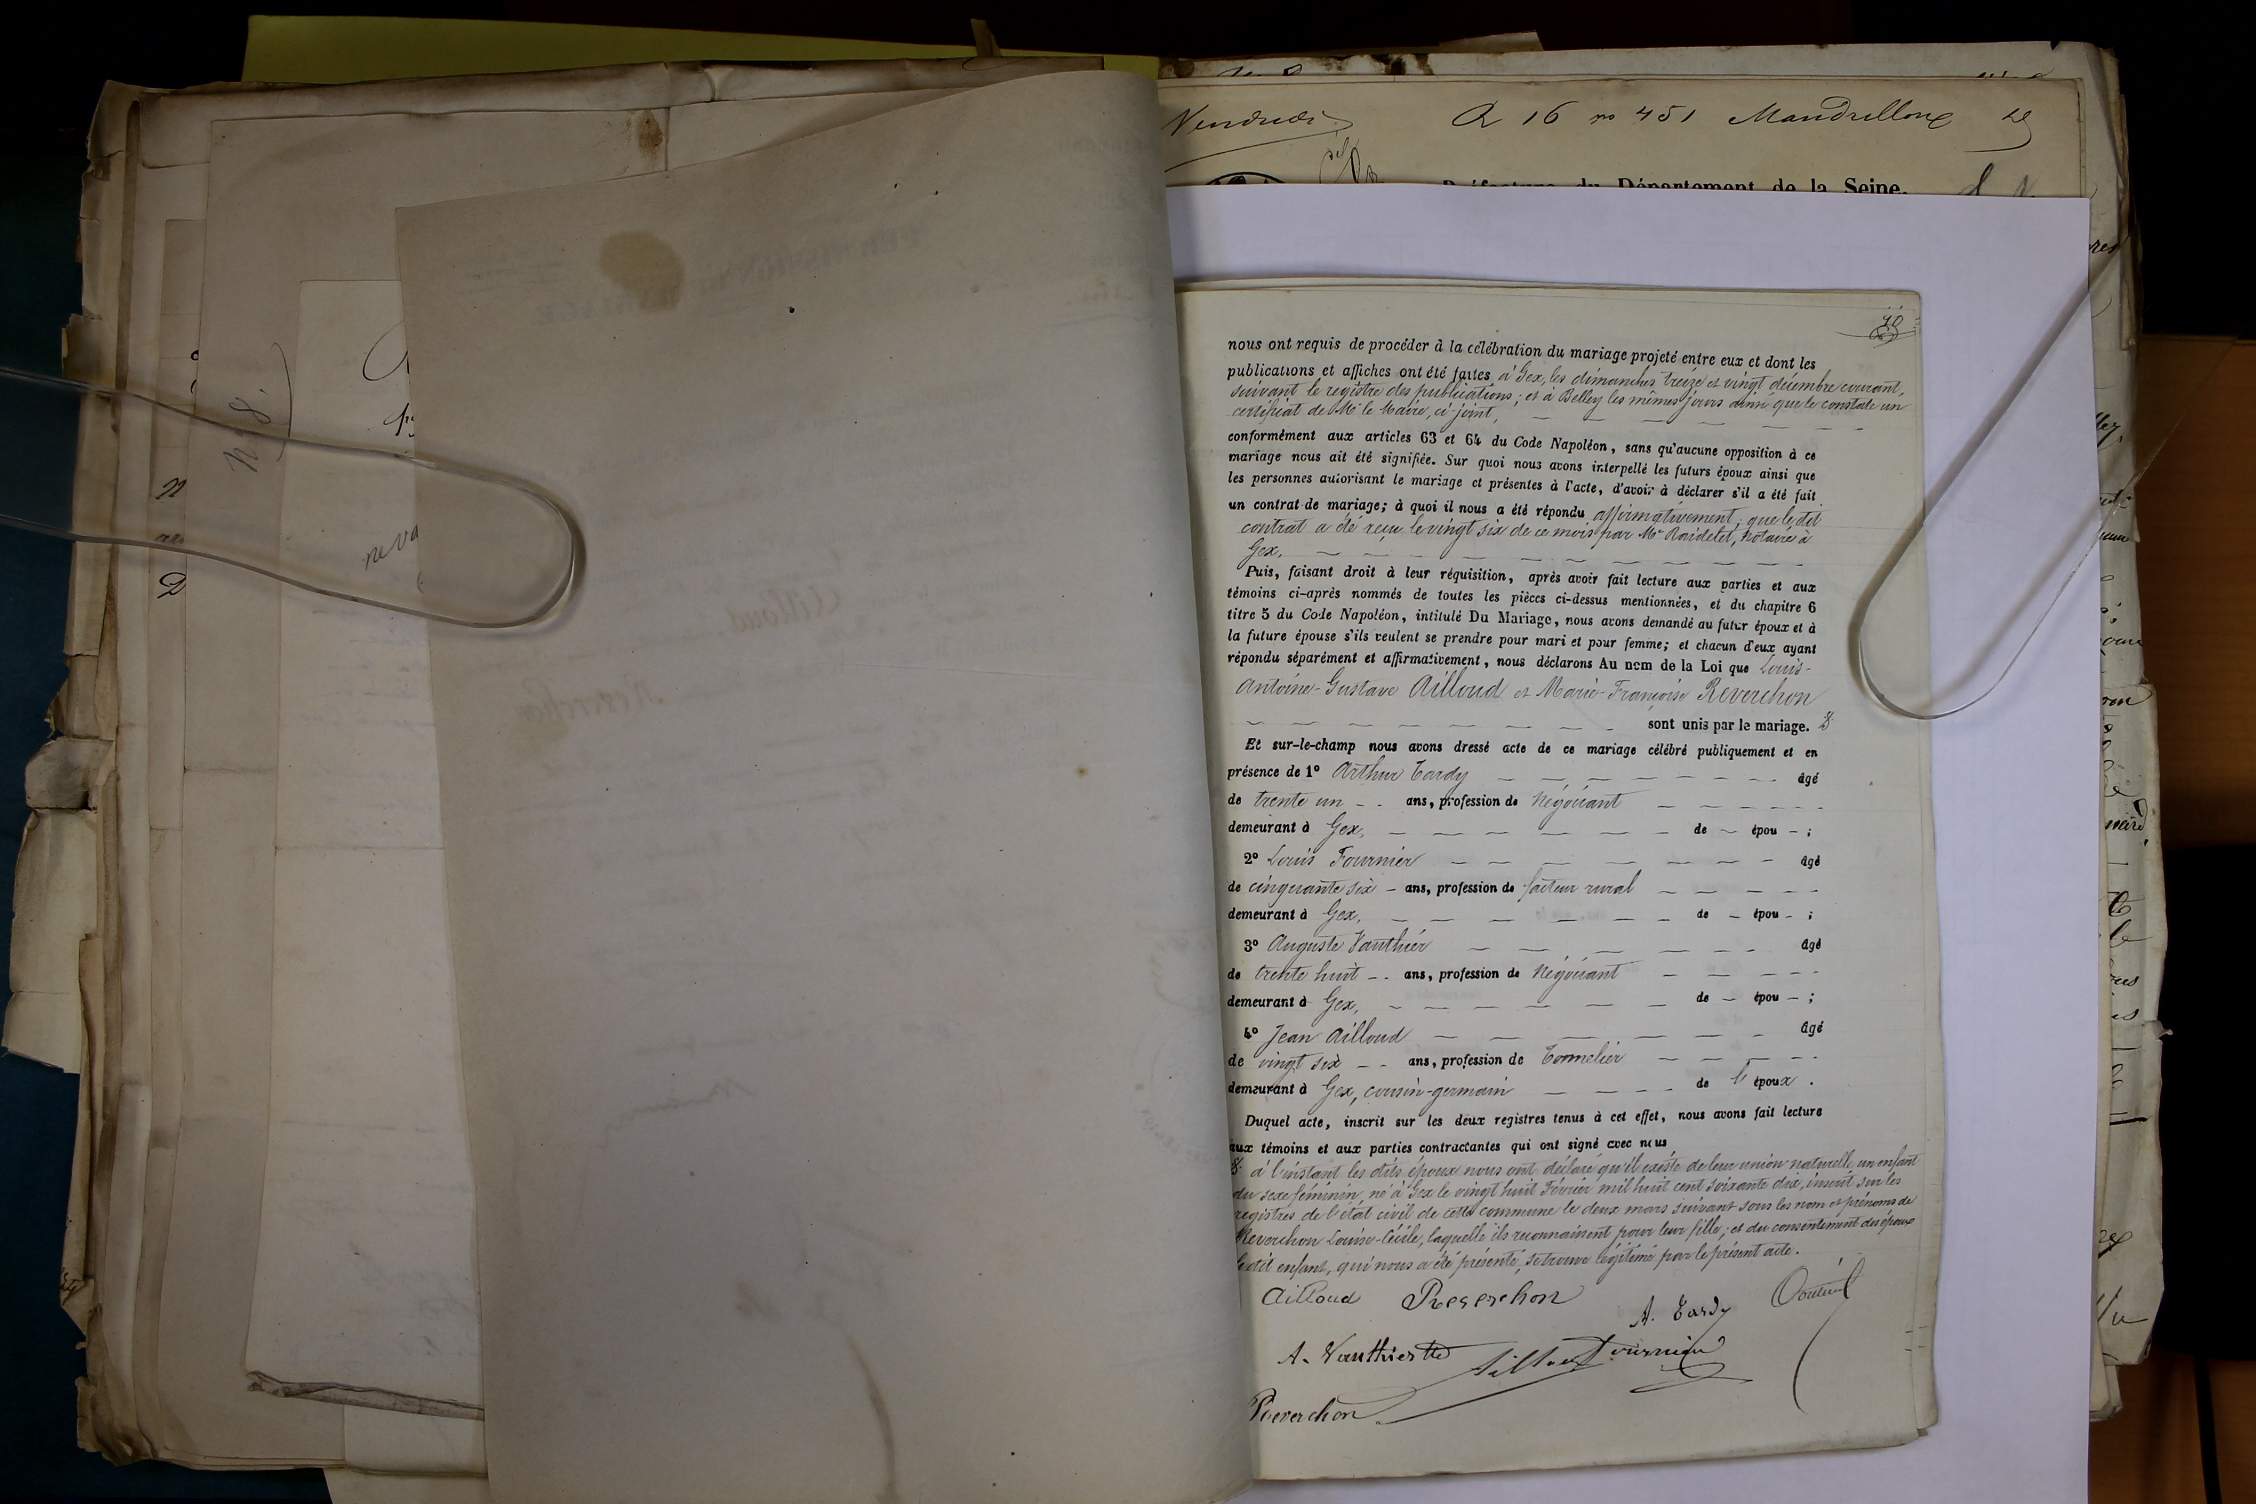 Vendredi
A 16 no 451 Mandrilloux
Préfecture du Département de la Seine.
No 8.
nous ont requis de procéder à la célébration du mariage projeté entre eux et dont les
publications et affiches ont été faites à Gex, les dimanches treize et vingt décembre courant,
suivant le registre des publications; et à Belley les mêmes jours ainsi que le constate un
certificat de Mr le Maire, ci-joint,
conformément aux articles 63 et 64 du Code Napoléon, sans qu'aucune opposition à ce
mariage nous ait été signifiée. Sur quoi nous avons interpellé les futurs époux ainsi que
les personnes autorisant le mariage et présentes à l'acte, d'avoir à déclarer s'il a été fait
un contrat de mariage; à quoi il nous a été répondu affirmativement; que le dit
contrat a été reçu le vingt six de ce mois par Me Roidelet, notaire à
Gex.
Puis, faisant droit à leur réquisition, après avoir fait lecture aux parties et aux
témoins ci-après nommés de toutes les pièces ci-dessus mentionnées, et du chapitre 6
titre 5 du Code Napoléon, intitulé Du Mariage, nous avons demandé au futur époux et à
la future épouse s'ils veulent se prendre pour mari et pour femme; et chacun d'eux ayant
répondu séparément et affirmativement, nous déclarons Au nom de la Loi que Louis-
Antoine-Gustave Ailloud et Marie-Françoise Reverchon
sont unis par le mariage.
Et sur-le-champ nous avons dressé acte de ce mariage célébré publiquement et en
présence de 1º Arthur Tardy âgé
de trente un ans, profession de Négociant
demeurant à Gex, de — épou — ;
2º Louis Fournier âgé
de cinquante six ans, profession de facteur rural
demeurant à Gex, de — épou — ;
3º Auguste Vauthier âgé
de trente huit ans, profession de Négociant
demeurant à Gex, de — épou — ;
4º Jean Ailloud âgé
de vingt six ans, profession de Tonnelier
demeurant à Gex, cousin-germain de l'époux.
Duquel acte, inscrit sur les deux registres tenus à cet effet, nous avons fait lecture
aux témoins et aux parties contractantes qui ont signé avec nous
à l'instant les dits époux nous ont déclaré qu'il existe de leur union naturelle un enfant
du sexe féminin, né à Gex le vingt huit Février mil huit cent soixante dix, inscrit sur les
registres de l'état civil de cette commune le deux mars suivant sous les nom et prénoms de
Reverchon Louise-Cécile, laquelle ils reconnaissent pour leur fille; et du consentement des époux
le dit enfant, qui nous a été présenté, se trouve légitimé par le présent acte.
Ailloud Reverchon
A. Tardy
A. Vauthier Ailloud Fournier
Reverchon